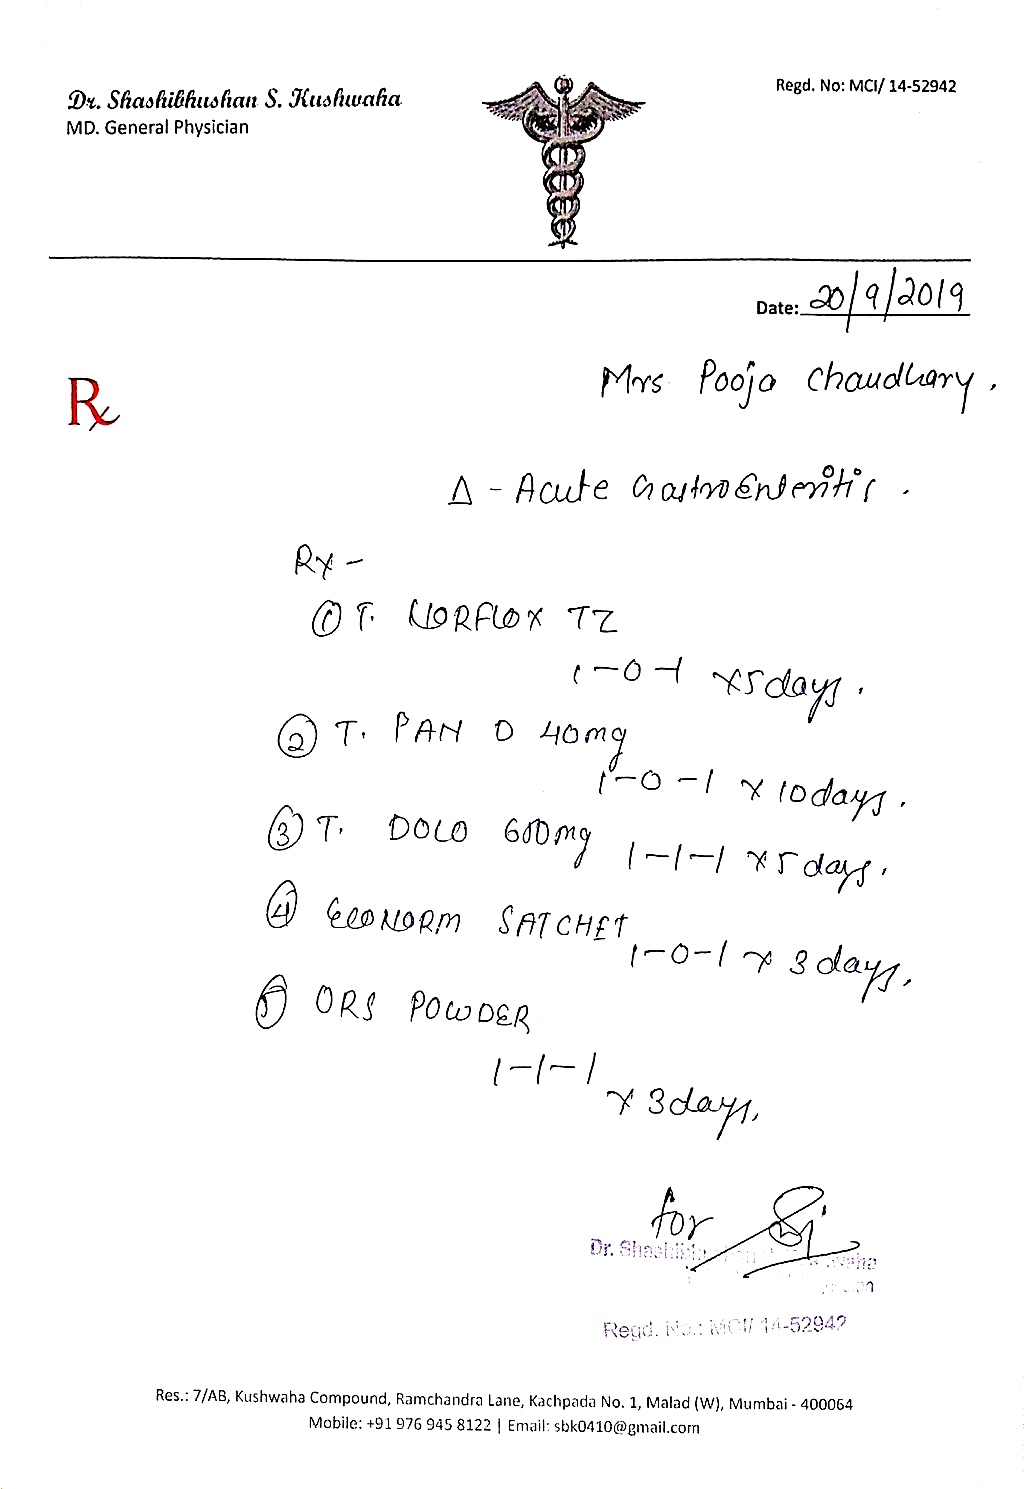 Dr. Shashibhushan S. Kushwaha
MD. General Physician
Regd. No: MCI/ 14-52942
Date: 20/9/2019
Rx
Mrs Pooja Chaudhary.
Δ - Acute GastroEnteritis.
Rx -
① T. NORFLOX TZ
1-0-1 x 5 days.
② T. PAN D 40mg
1-0-1 x 10 days.
③ T. DOLO 650mg 1-1-1 x 5 days.
④ ECONORM SATCHET
1-0-1 x 3 days.
⑤ ORS POWDER
1-1-1
x 3 days.
for
Dr. Shashibhushan S. Kushwaha
Regd. No.: MCI/ 14-52942
Res.: 7/AB, Kushwaha Compound, Ramchandra Lane, Kachpada No. 1, Malad (W), Mumbai - 400064
Mobile: +91 976 945 8122 | Email: sbk0410@gmail.com